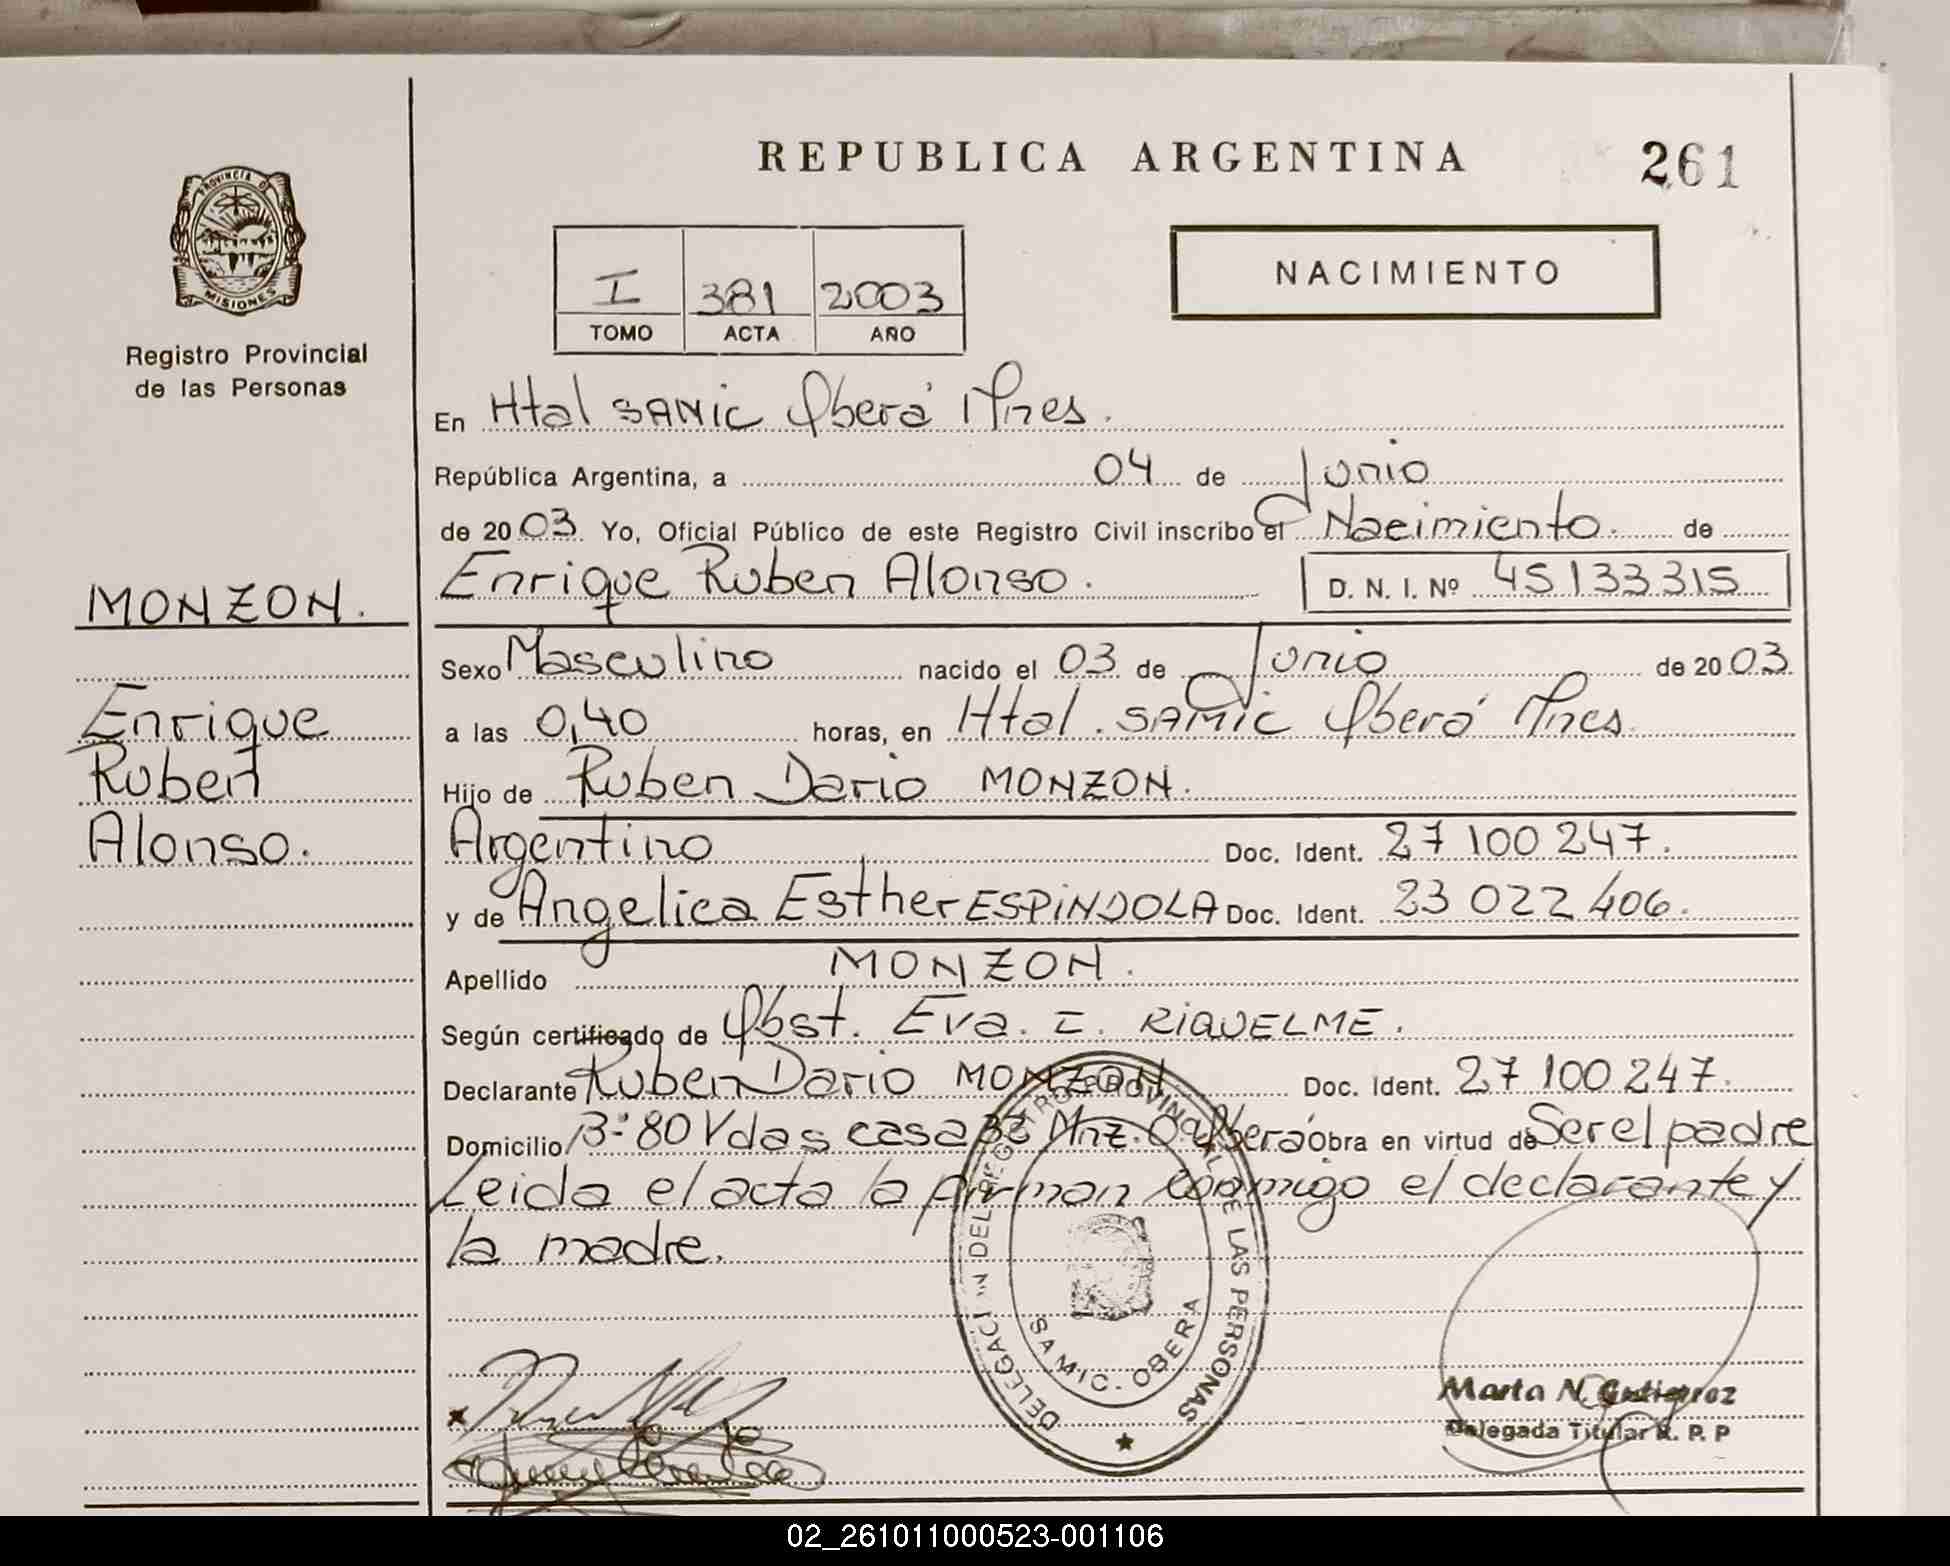 REPUBLICA ARGENTINA
261
PROVINCIA DE
MISIONES
Registro Provincial
de las Personas
I 381 2003
TOMO ACTA AÑO
NACIMIENTO
En Htal SAMIC Oberá Mnes.
República Argentina, a 04 de Junio
de 2003 Yo, Oficial Público de este Registro Civil inscribo el Nacimiento. de
Enrique Ruben Alonso. D. N. I. Nº 45133315
MONZON.
Enrique
Ruben
Alonso.
Sexo Masculino nacido el 03 de Junio de 2003
a las 0,40 horas, en Htal. SAMIC Oberá Mnes
Hijo de Ruben Dario MONZON.
Argentino Doc. Ident. 27 100 247.
y de Angelica Esther ESPINDOLA Doc. Ident. 23 022 406.
Apellido MONZON.
Según certificado de Obst. Eva. I. RIQUELME.
Declarante Ruben Dario MONZON Doc. Ident. 27 100 247.
Domicilio Bº 80 Vdas casa Mnz. Oberá Obra en virtud de Ser el padre
Leida el acta la firman conmigo el declarante y
la madre.
DELEGACI N DEL REGISTRO PROVINCIAL DE LAS PERSONAS
SAMIC. OBERA
Marta N. Gutierrez
Delegada Titular R. P. P
02_261011000523-001106